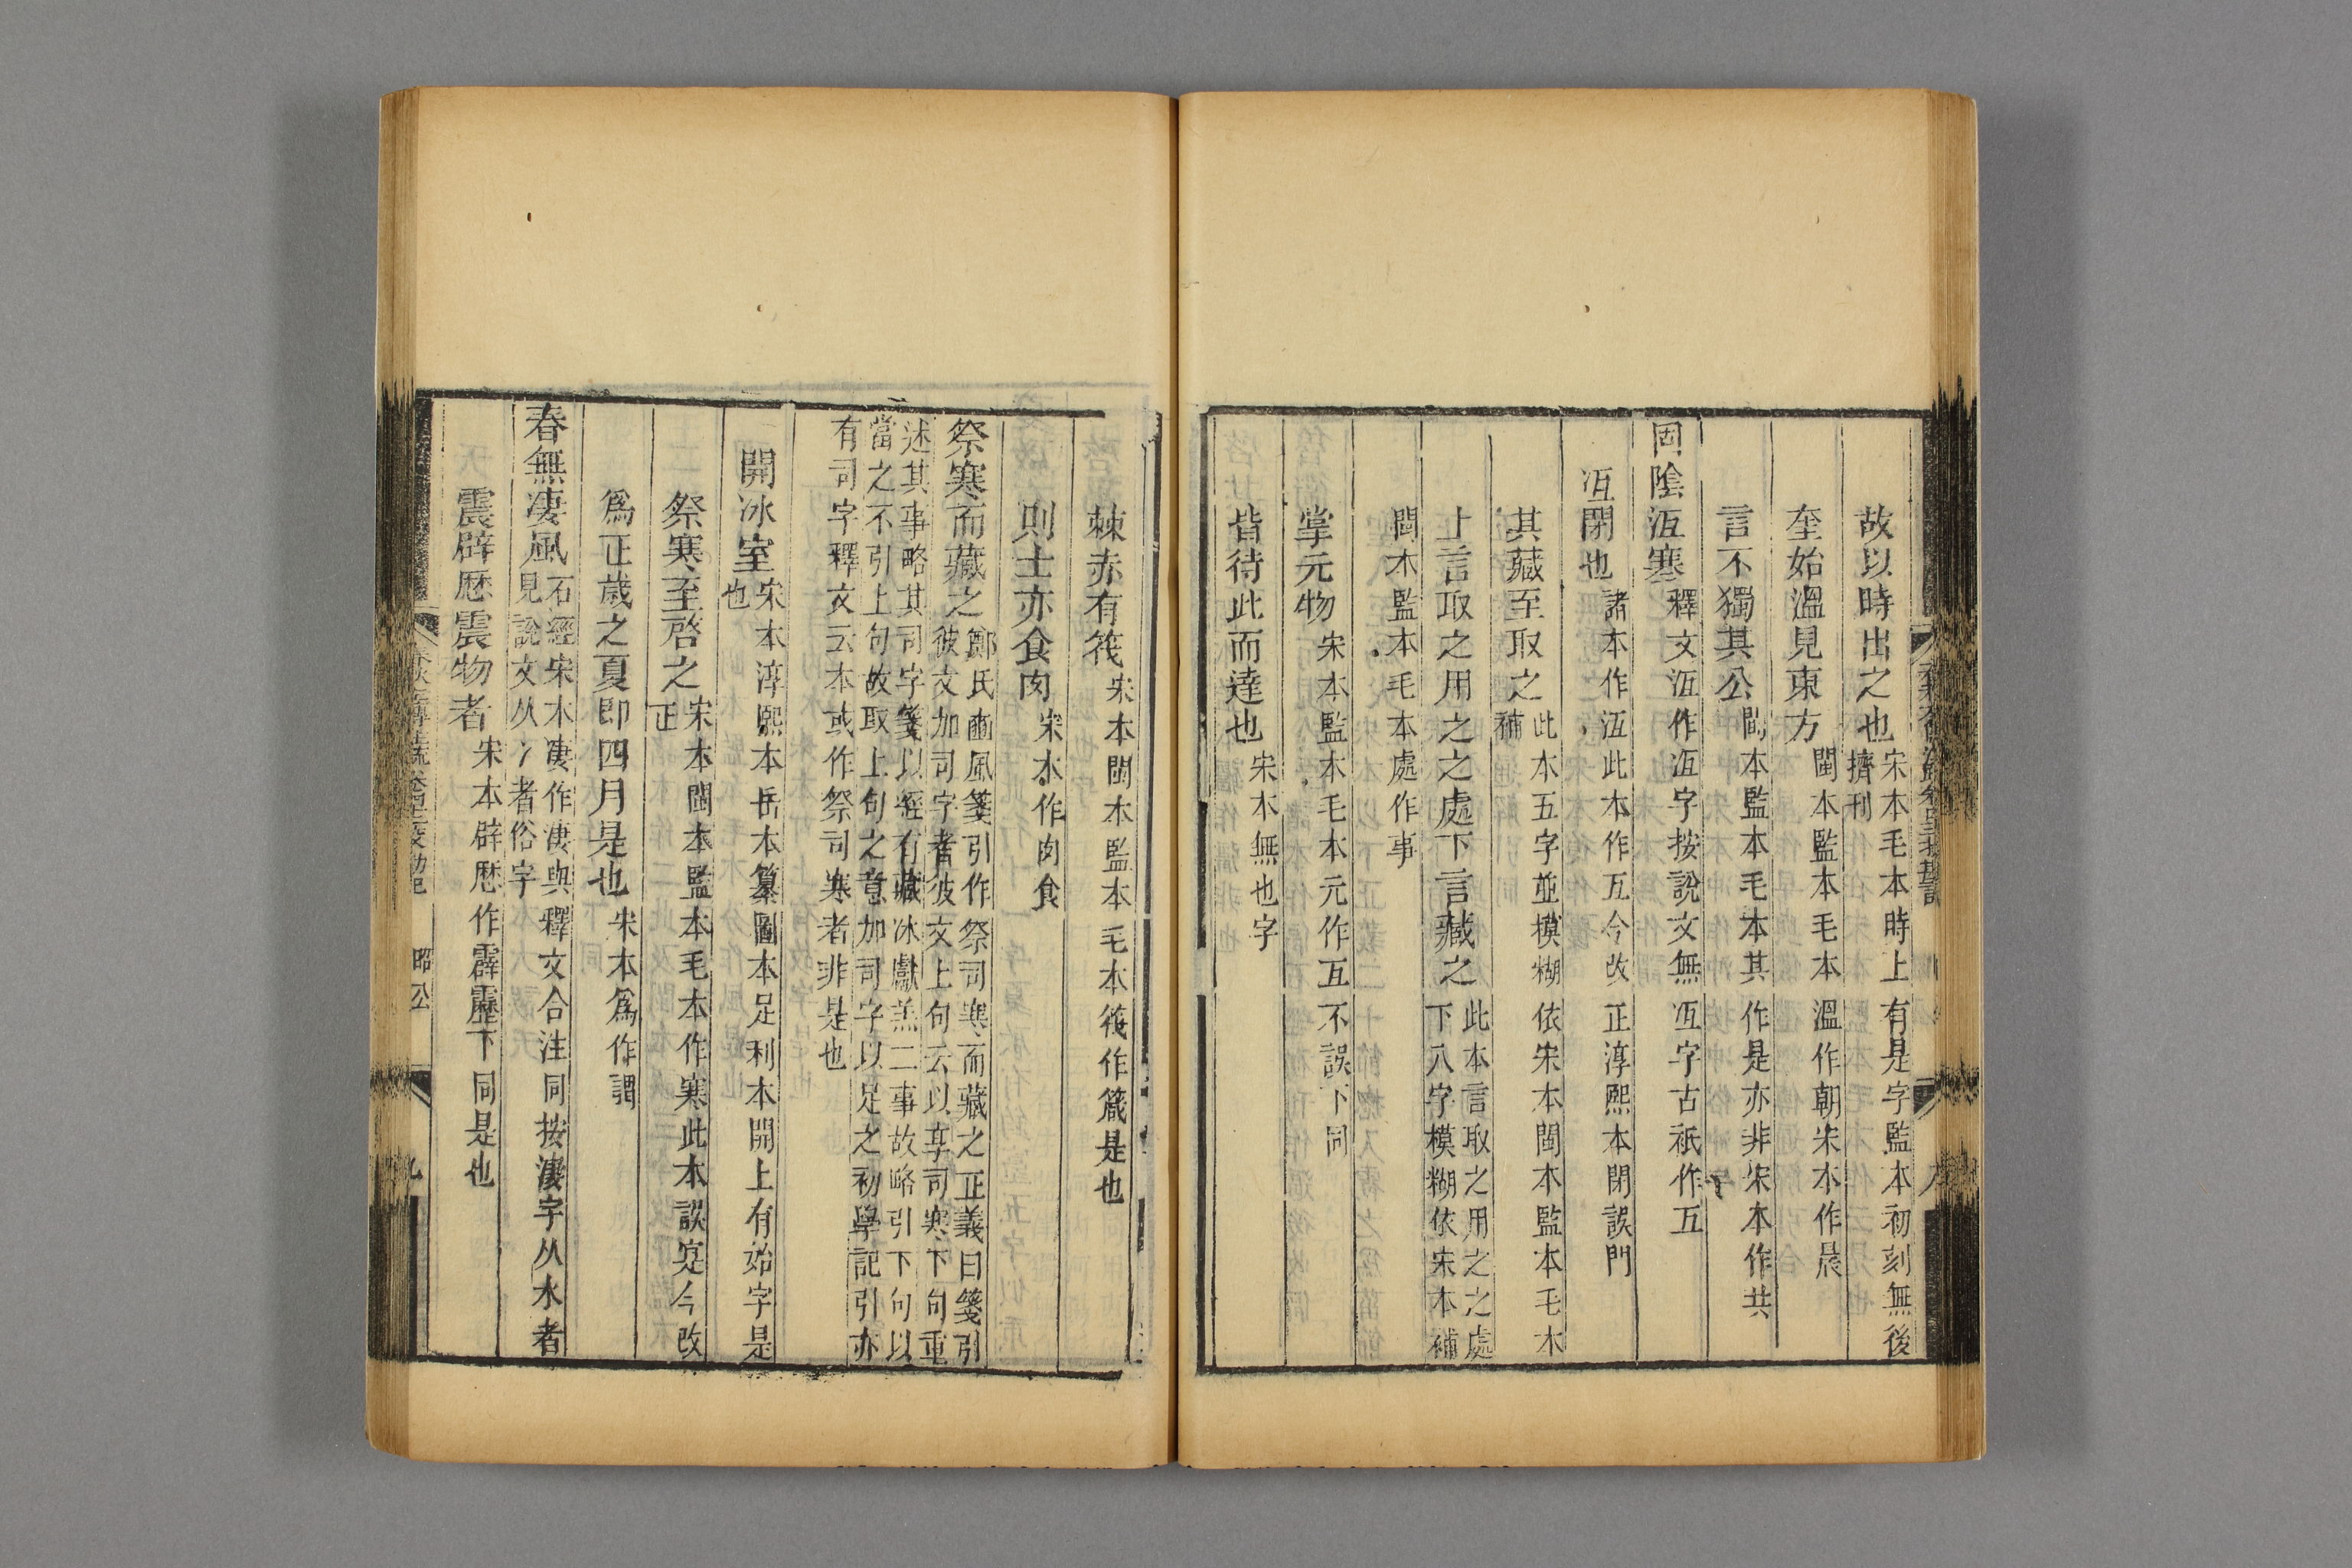 故以時出之也宋本毛本時上有是字監本初刻無後擠刋
奎始溫見東方閩本監本毛本溫作朝宋本作晨
言不獨其公閩本監本毛本其作是亦非宋本作共
固陰沍寒釋文沍作冱字按說文無冱字古祇作互
冱閉也諸本作沍此本作互今改正淳熙本閉誤門
其藏至取之此本五字並模糊依宋本閩本監本毛本補
上言取之用之之處下言藏之此本言取之用之之處下八字模糊依宋本補
閩本監本毛本處作事
掌元物宋本監本毛本元作互不誤下同
皆待此而達也宋本無也字
棘赤有筏宋本閩本監本毛本筏作箴是也
則士亦食肉宋本作肉食
祭寒而藏之鄭氏豳風箋引作祭司寒而藏之正義曰箋引彼文加司字者彼文上句云以享司寒下句重
述其事略其司字箋以經有藏冰獻羔二事故略引下句以當之不引上句故取上句之意加司字以足之初學記引亦
有司字釋文云本或作祭司寒者非是也
開冰室宋本淳熙本岳本纂圖本足利本開上有始字是也
祭寒至啓之宋本閩本監本毛本作寒此本誤寔今改正
爲正歲之夏即四月是也宋本爲作謂
春無淒風石經宋本淒作凄與釋文合注同按淒字从水者見說文从冫者俗字
震辟歷震物者宋本辟歷作霹靂下同是也
昭公
九